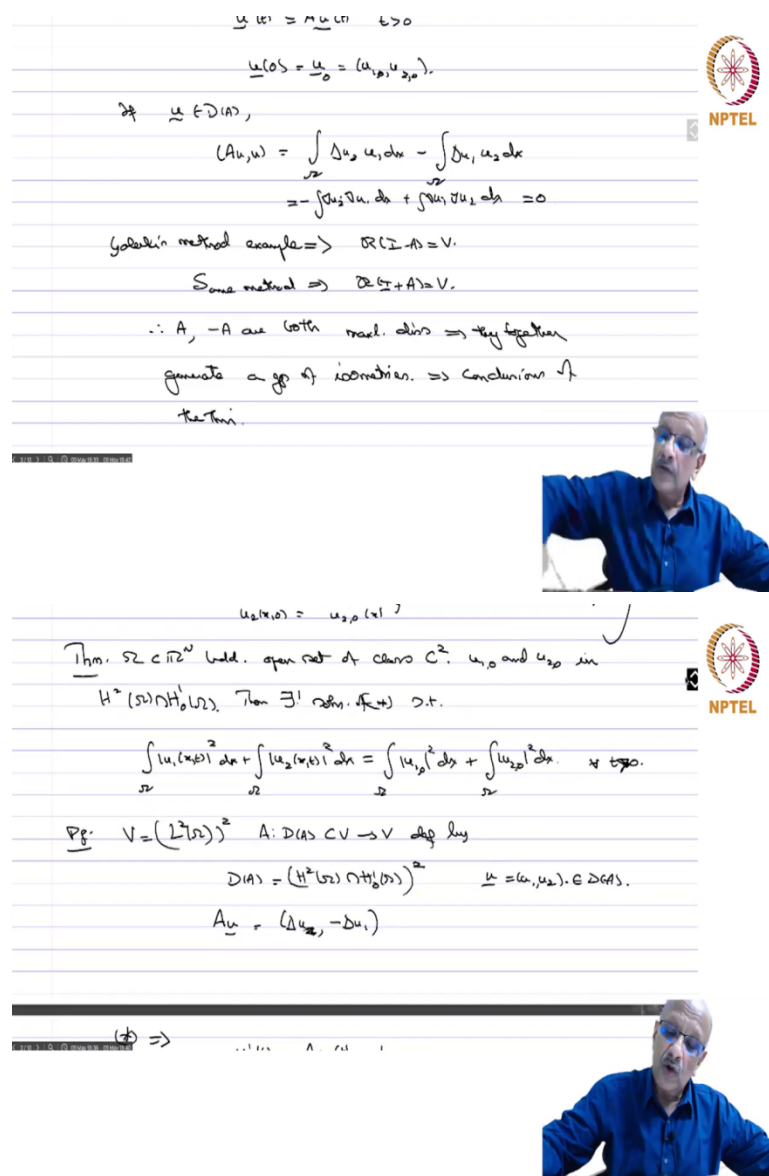 u'(t) = Au(t) t>0
u(0) = u_0 = (u_{1,0}, u_{2,0}).
NPTEL
If u ∈ D(A),
(Au,u) = ∫_Ω Δu_2 u_1 dx - ∫_Ω Δu_1 u_2 dx
= -∫∇u_2 ∇u_1 dx + ∫∇u_1 ∇u_2 dx = 0
Galerkin method example => R(I-A)=V.
Same method => R(I+A)=V.
∴ A, -A are both maxl. diss => they together
generate a gp of isometries. => conclusion of
the Thm.
u_2(x,0) = u_{2,0}(x)
Thm. Ω ⊂ ℝ^N bdd. open set of class C². u_{1,0} and u_{2,0} in
NPTEL
H²(Ω)∩H¹_0(Ω). Then ∃! soln. of (*) s.t.
∫_Ω |u_1(x,t)|² dx + ∫_Ω |u_2(x,t)|² dx = ∫_Ω |u_{1,0}|² dx + ∫_Ω |u_{2,0}|² dx. ∀
Pf: V = (L²(Ω))² A: D(A) ⊂ V → V def by
D(A) = (H²(Ω)∩H¹_0(Ω))² u = (u_1,u_2) ∈ D(A).
Au = (Δu_2, -Δu_1)
(*) =>